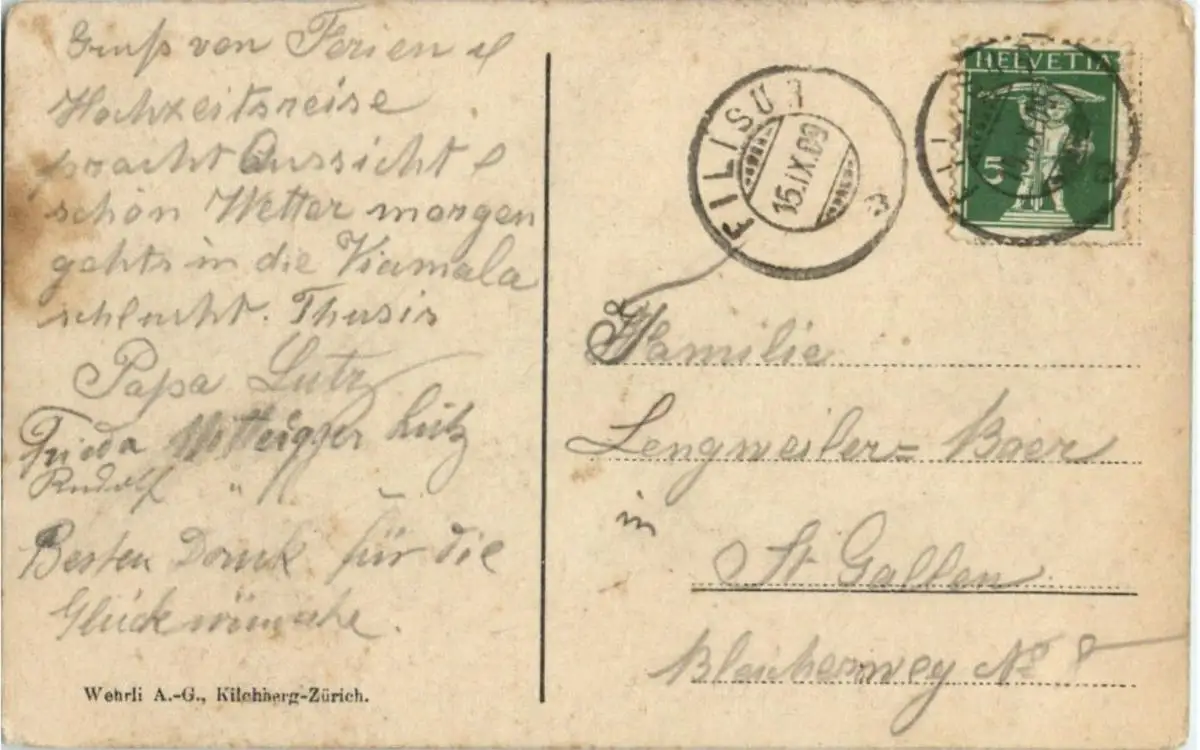 Gruß von Ferien &
Hochzeitsreise
pracht Aussicht &
schön Wetter morgen
gehts in die Viamala
schlucht. Thusis
Papa Lutz
Frieda Lutz
Rudolf " "
Besten Dank für die
Glückwünsche.
Wehrli A.-G., Kilchberg-Zürich.
FILISUR
15.IX.09
HELVETIA
5
Familie
Lengweiler=Baer
in
St Gallen
Bleicherweg No 8